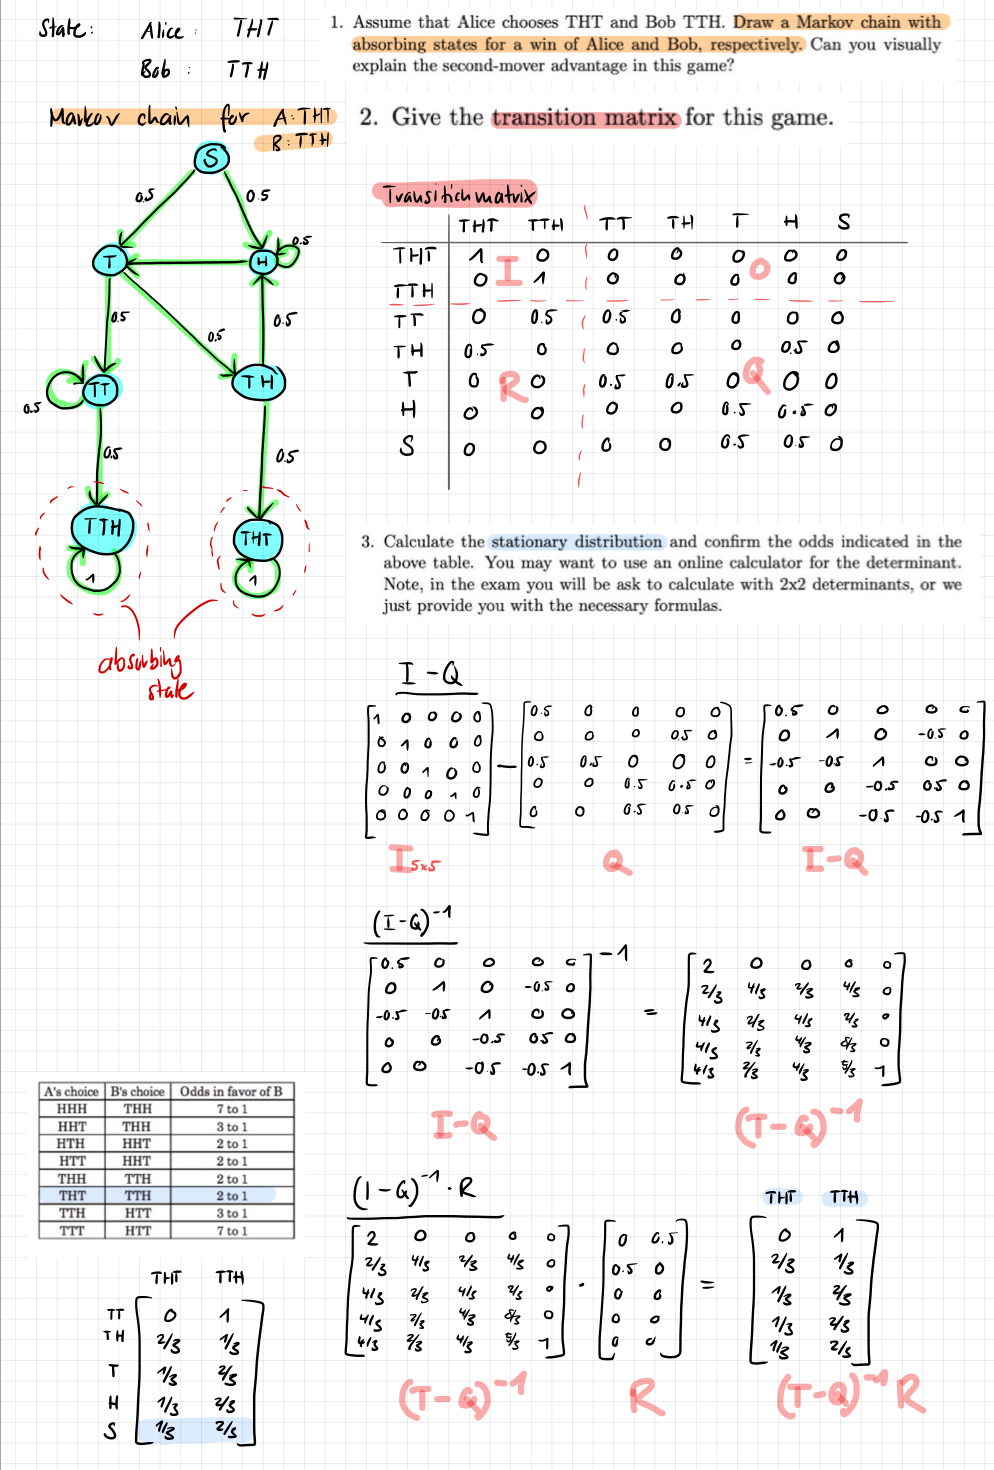 State: Alice: THT
Bob: TTH
1. Assume that Alice chooses THT and Bob TTH. Draw a Markov chain with
absorbing states for a win of Alice and Bob, respectively. Can you visually
explain the second-mover advantage in this game?
Markov chain for A:THT
B:TTH
S
0.5 0.5
T H 0.5
0.5 0.5 0.5
TT TH
0.5
0.5 0.5
TTH THT
1 1
absorbing
state
2. Give the transition matrix for this game.
Transition matrix
THT TTH TT TH T H S
THT 1 0 0 0 0 0 0
TTH 0 1 0 0 0 0 0
I O
TT 0 0.5 0.5 0 0 0 0
TH 0.5 0 0 0 0 0.5 0
T 0 0 0.5 0.5 0 0 0
R Q
H 0 0 0 0 0.5 0.5 0
S 0 0 0 0 0.5 0.5 0
3. Calculate the stationary distribution and confirm the odds indicated in the
above table. You may want to use an online calculator for the determinant.
Note, in the exam you will be ask to calculate with 2x2 determinants, or we
just provide you with the necessary formulas.
I-Q
1 0 0 0 0 0.5 0 0 0 0 0.5 0 0 0 0
0 1 0 0 0 0 0 0 0.5 0 0 1 0 -0.5 0
0 0 1 0 0 - 0.5 0.5 0 0 0 = -0.5 -0.5 1 0 0
0 0 0 1 0 0 0 0.5 0.5 0 0 0 -0.5 0.5 0
0 0 0 0 1 0 0 0.5 0.5 0 0 0 -0.5 -0.5 1
I 5x5 Q I-Q
(I-Q)^-1
0.5 0 0 0 0 -1 2 0 0 0 0
0 1 0 -0.5 0 2/3 4/3 2/3 4/3 0
-0.5 -0.5 1 0 0 = 4/3 2/3 4/3 2/3 0
0 0 -0.5 0.5 0 4/3 2/3 4/3 8/3 0
0 0 -0.5 -0.5 1 4/3 2/3 4/3 5/3 1
I-Q (I-Q)^-1
A's choice B's choice Odds in favor of B
HHH THH 7 to 1
HHT THH 3 to 1
HTH HHT 2 to 1
HTT HHT 2 to 1
THH TTH 2 to 1
THT TTH 2 to 1
TTH HTT 3 to 1
TTT HTT 7 to 1
(I-Q)^-1 · R
THT TTH
2 0 0 0 0 0 0.5 0 1
2/3 4/3 2/3 4/3 0 0.5 0 2/3 1/3
4/3 2/3 4/3 2/3 0 · 0 0 = 1/3 2/3
4/3 2/3 4/3 8/3 0 0 0 1/3 2/3
4/3 2/3 4/3 5/3 1 0 0 1/3 2/3
(I-Q)^-1 R (I-Q)^-1 R
THT TTH
TT 0 1
TH 2/3 1/3
T 1/3 2/3
H 1/3 2/3
S 1/3 2/3